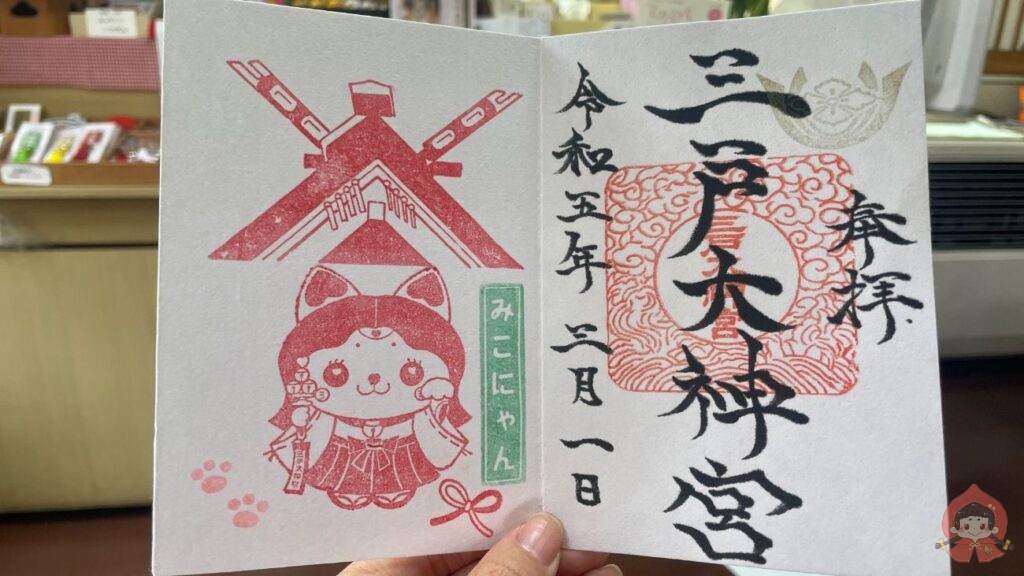 奉拝
三戸大神宮
令和五年三月一日
みこにゃん